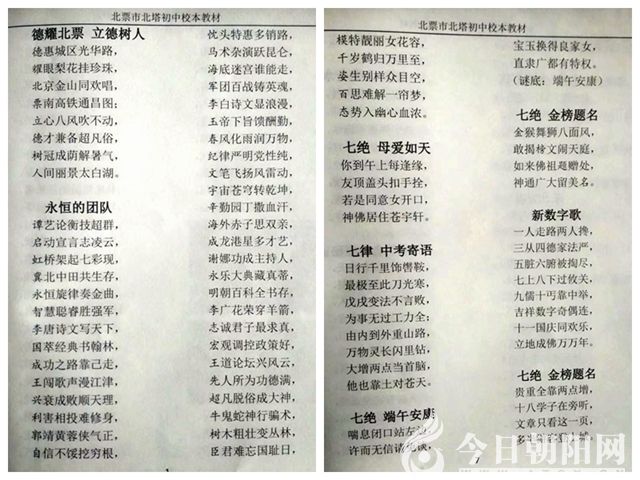 北票市北塔初中校本教材
德耀北票 立德树人
德惠城区光华路，
耀眼梨花挂珍珠，
北京金山同欢唱，
票南高铁通昌图；
立心八风吹不动，
德才兼备超凡俗，
树冠成荫解暑气，
人间丽景太白湖。
永恒的团队
谭艺论衡技超群，
启动宣言志凌云，
虹桥架起七彩现，
冀北中田共生存，
永恒旋律奏金曲，
智慧聪睿胜强军，
李唐诗文写天下，
国萃经典书翰林，
成功之路靠己走，
王闯歌声漫江津，
兴衰成败顺天理，
利害相投难修身，
郭靖黄蓉侠气正，
自信不馁挖穷根，
忧头特惠多销路，
马术杂演跃昆仑，
海底迷宫谁能走，
军团百战铸英魂，
李白诗文显浪漫，
玉帝下旨馈酬勤，
春风化雨润万物，
纪律严明党性纯，
文笔飞扬风雷动，
宇宙苍穹转乾坤，
辛勤园丁撒血汗，
海外赤子思双亲，
成龙港星多才艺，
谢娜功成主持人，
永乐大典藏真蒂，
明朝百科全书存，
李广花荣穿羊箭，
志诚君子最求真，
宏观调控政策好，
王道论坛兴风云，
先人所为功德满，
超凡脱俗成大神，
牛鬼蛇神行骗术，
树木粗壮变丛林，
臣君难忘国耻日，
1
北票市北塔初中校本教材
模特靓丽女花容，
千岁鹤归万里至，
姿生别样众目空，
百思难解一帘梦，
态势入幽心血浓。
七绝 母爱如天
你到午上每逢缘，
友顶盖头扣手拴，
若是同意女开口，
神佛居住苍宇轩。
七律 中考寄语
日行千里饰辔鞍，
最极至此刀光寒，
戊戌变法不言败，
为事无过工力全；
由内到外重山路，
万物灵长闪里钻，
大增两点当首脑，
他也靠土对苍天。
七绝 端午安康
喘息闭口站左边，
许而无信请免谈，
宝玉换得良家女，
直隶广都有特权。
（谜底：端午安康）
七绝 金榜题名
金猴舞狮八面风，
敢揭榜文闹天庭，
如来佛祖飓赠处，
神通广大留美名。
新数字歌
一人走路两人搀，
三从四德家法严，
五脏六腑被掏尽，
七上八下过攸关，
九儒十丐靠中举，
吉祥数字奇偶连，
十一国庆同欢乐，
立地成佛万万年。
七绝 金榜题名
贵重全靠两点增，
十八学子在旁听，
文章只看这一页，
今日朝阳网